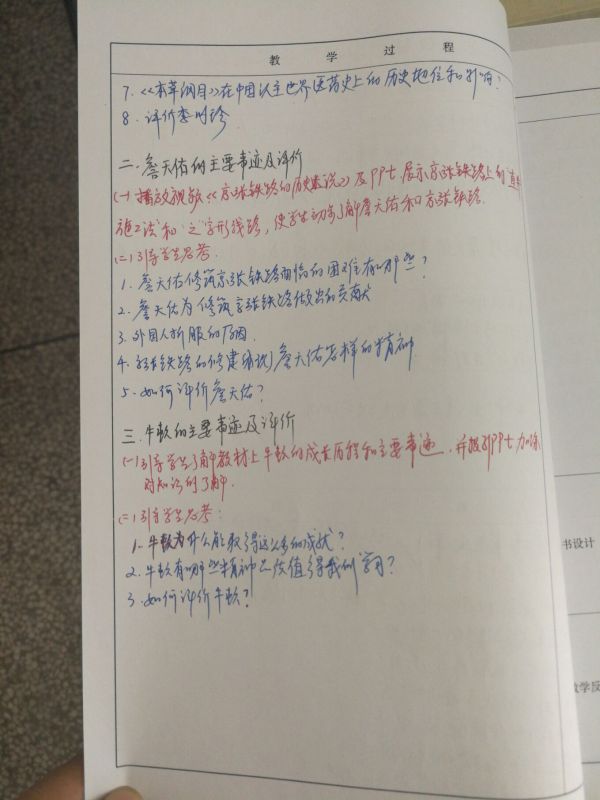 教 学 过 程
7. 《本草纲目》在中国以至世界医药史上的历史地位和影响?
8. 评价李时珍
二. 詹天佑的主要事迹及评价
(一) 播放视频《京张铁路的历史
及PPt, 展示京张铁路上的“直
施工法”和“之”字形线路, 使学生初步了解詹天佑和京张铁路.
(二) 引导学生思考.
1. 詹天佑修筑京张铁路面临的困难有哪些?
2. 詹天佑为修筑京张铁路做出的贡献
3. 外国人折服的原因.
4. 京张铁路的修建体现詹天佑怎样的精神
5. 如何评价詹天佑?
三. 牛顿的主要事迹及评价
(一) 引导学生了解教材上牛顿的成长历程和主要事迹, 并
PPt 加深
对知识的了解.
(二) 引导学生思考:
1. 牛顿为什么能取得这么多的成就?
2. 牛顿有哪些精神品质值得我们学习?
3. 如何评价牛顿?
书设计
教学反